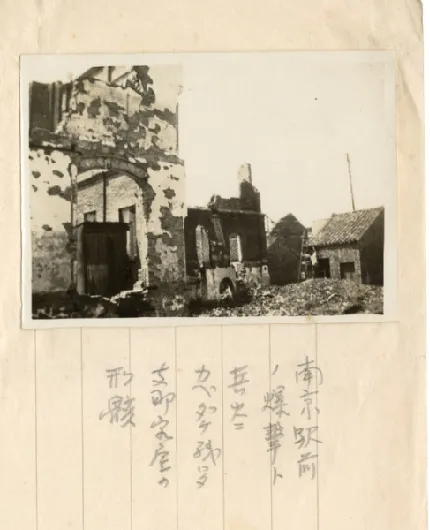 南京駅前
ノ爆撃ト
兵火ニ
カベダケ残る
支那家屋の
形骸